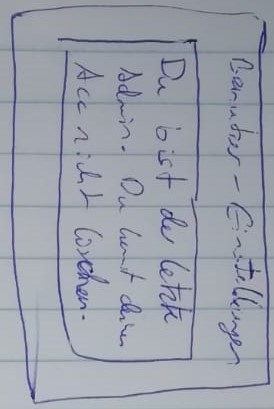 Benutzer - Einstellungen
Du bist der letzte
Admin. Du kannst deinen
Acc nicht löschen.